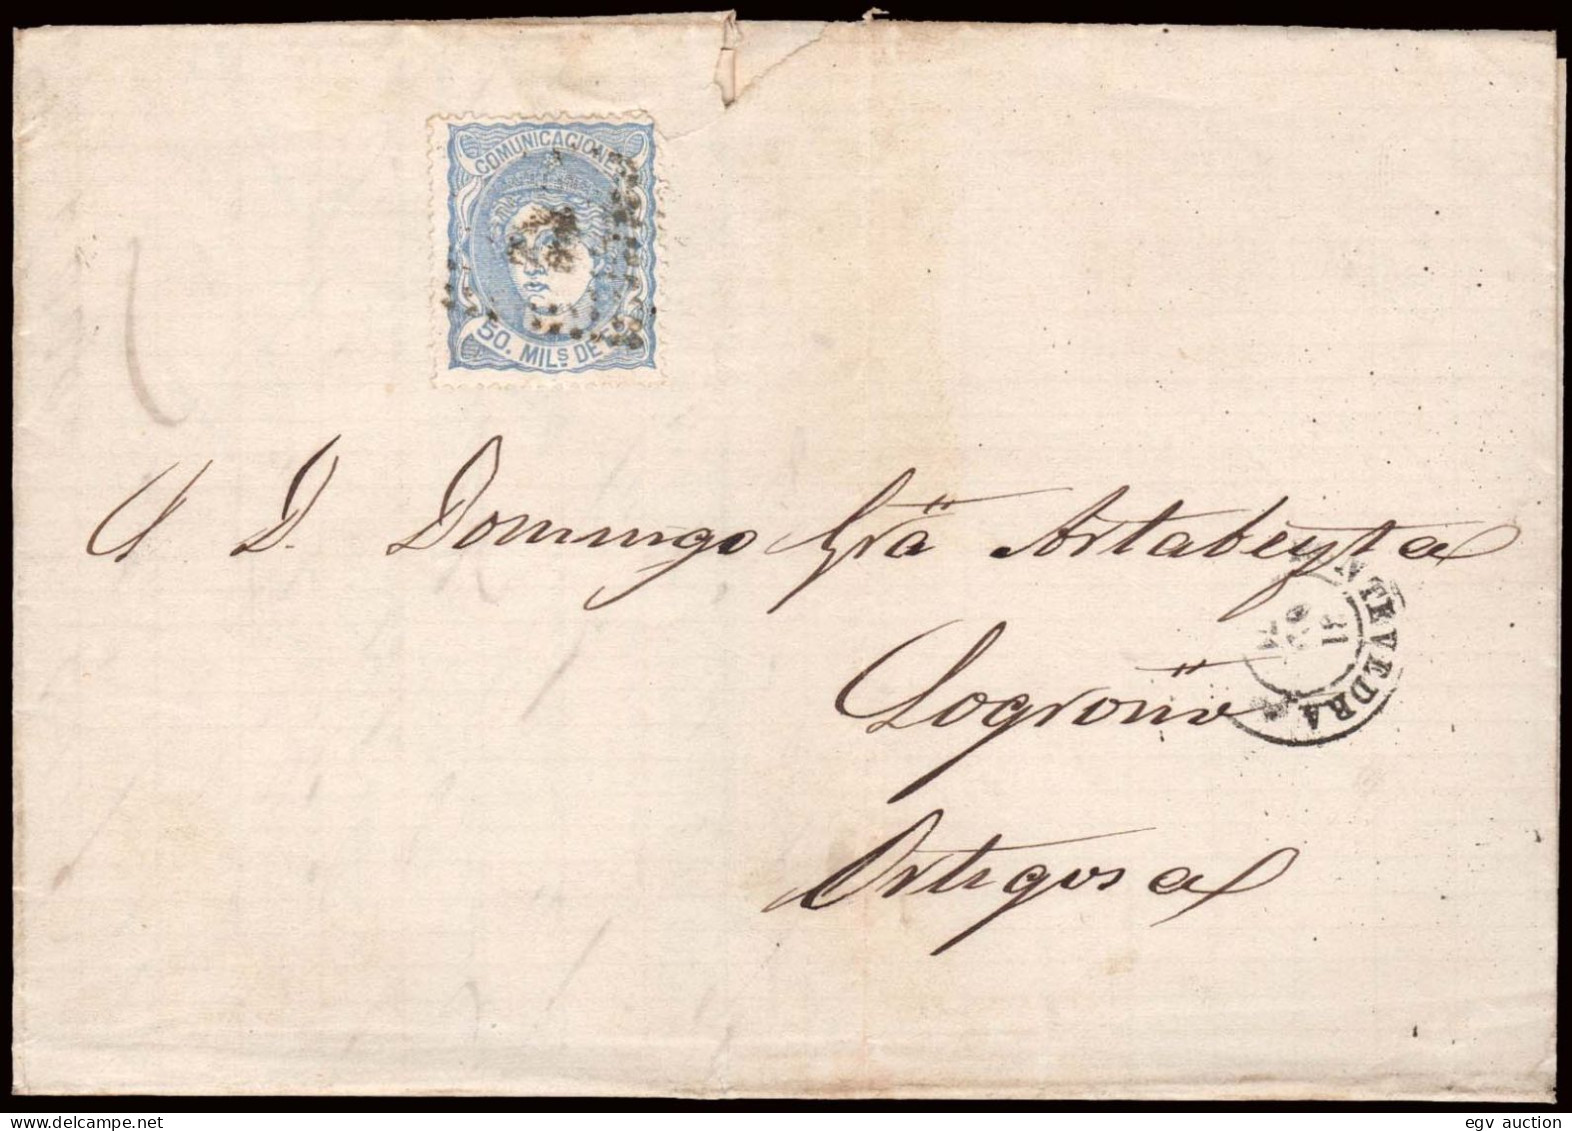 COMUNICACIONES
50. MILs DE E
A D. Domingo Gra Artabeyta
Logroño
Ortigosa
NTEVEDRA
egv auction